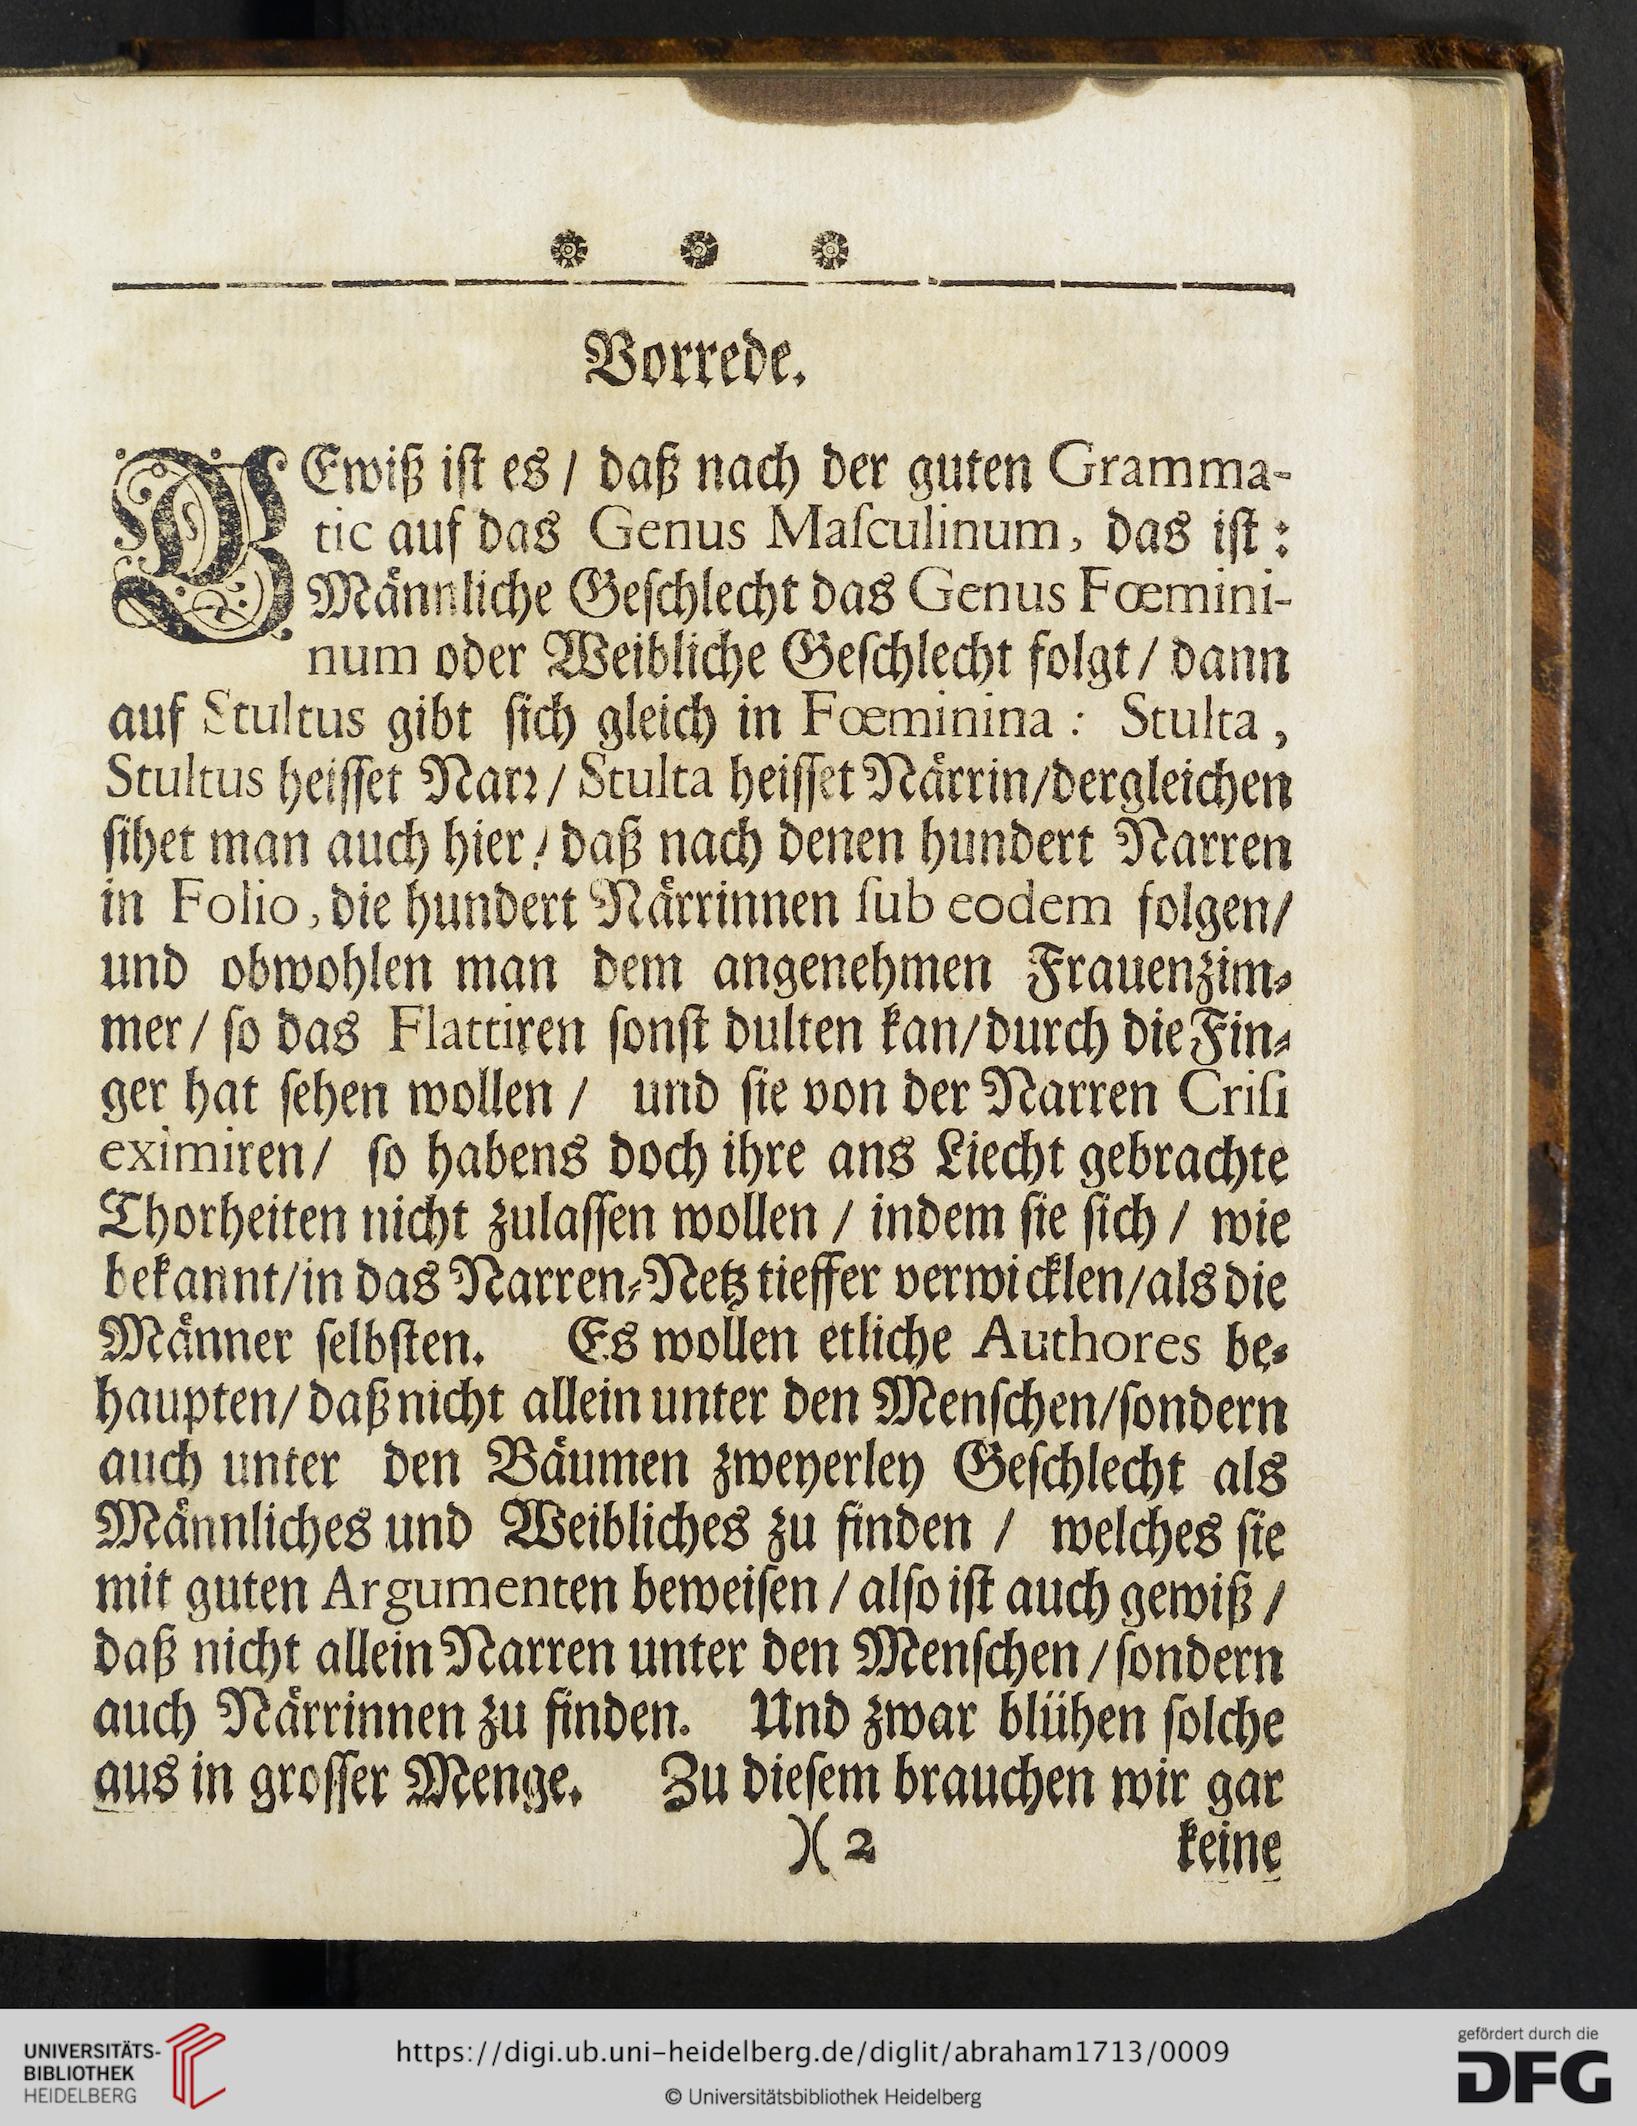 Vorrede.
GEwiß iſt es / daß nach der guten Gramma-
tic auf das Genus Maſculinum, das iſt:
Männliche Geſchlecht das Genus Fœmini-
num oder Weibliche Geſchlecht folgt / dann
auf Stultus gibt ſich gleich in Fœminina: Stulta,
Stultus heiſſet Narꝛ / Stulta heiſſet Närrin / dergleichen
ſihet man auch hier / daß nach denen hundert Narren
in Folio, die hundert Närrinnen ſub eodem folgen /
und obwohlen man dem angenehmen Frauenzim-
mer / ſo das Flattiren ſonſt dulten kan / durch die Fin-
ger hat ſehen wollen / und ſie von der Narren Criſi
eximiren / ſo habens doch ihre ans Liecht gebrachte
Thorheiten nicht zulaſſen wollen / indem ſie ſich / wie
bekannt / in das Narren-Netz tieffer verwicklen / als die
Männer ſelbſten. Es wollen etliche Authores be-
haupten / daß nicht allein unter den Menſchen / ſondern
auch unter den Bäumen zweyerley Geſchlecht als
Männliches und Weibliches zu finden / welches ſie
mit guten Argumenten beweiſen / alſo iſt auch gewiß /
daß nicht allein Narren unter den Menſchen / ſondern
auch Närrinnen zu finden. Und zwar blühen ſolche
aus in groſſer Menge. Zu dieſem brauchen wir gar
)( 2 keine
UNIVERSITÄTS-
BIBLIOTHEK
HEIDELBERG
https://digi.ub.uni-heidelberg.de/diglit/abraham1713/0009
© Universitätsbibliothek Heidelberg
gefördert durch die
DFG